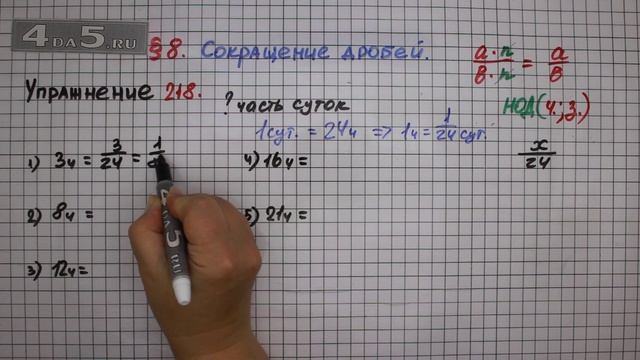 4DA5.RU
§8. Сокращение дробей.
a·n/в·n = a/в
Упражнение 218.
? часть суток
НОД(ч.;з.)
1сут. = 24ч => 1ч = 1/24 сут.
1) 3ч = 3/24 = 1/
4) 16ч =
x/24
2) 8ч =
5) 21ч =
3) 12ч =
4DA5